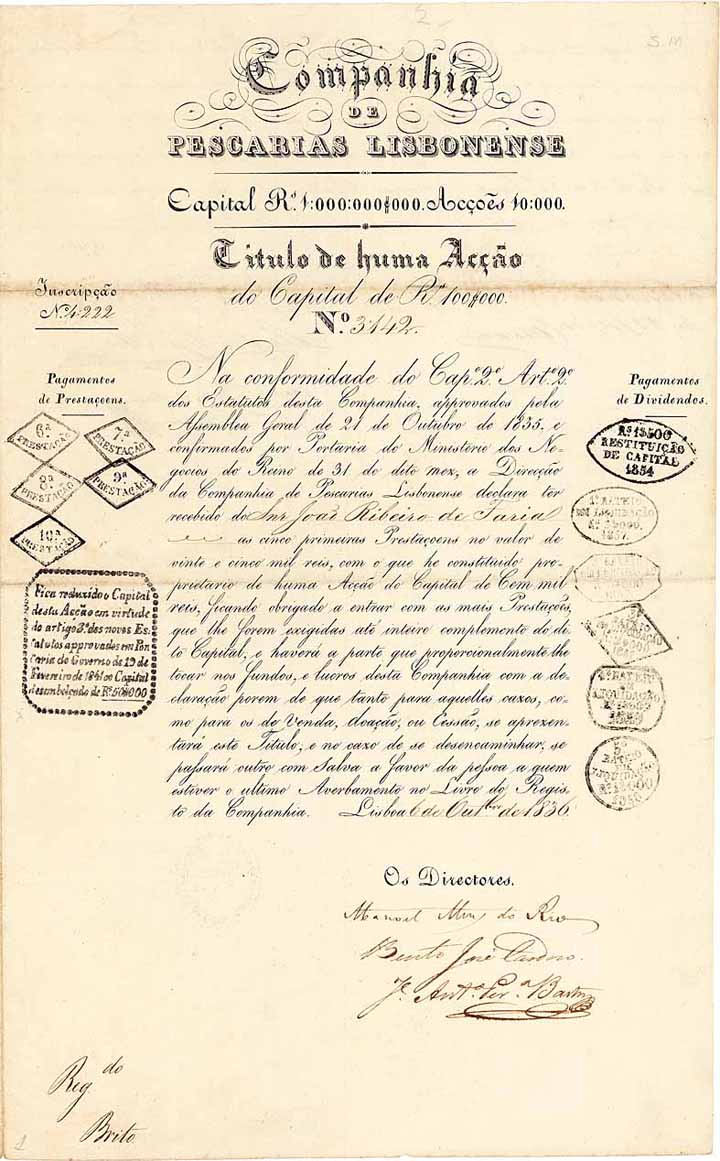 2
S.M
Companhia
DE
PESCARIAS LISBONENSE
Capital Rs. 1:000:000$000. Acções 10:000.
Titulo de huma Acção
do Capital de Rs. 100$000.
Nº 3142
Inscripção
Nº 4:222
Pagamentos
de Prestaçoens.
6ª
PRESTAÇÃO
7ª
PRESTAÇÃO
8ª
PRESTAÇÃO
9ª
PRESTAÇÃO
10ª
PRESTAÇÃO
Fica reduzido o Capital
desta Acção em virtude
do artigo 3º dos novos Es-
tatutos approvados em Por-
taria do Governo de 19 de
Fevereiro de 1841 o Capital
desembolçado de Rs. 50$000
Na conformidade do Capº 2º Artº 2º
dos Estatutos desta Companhia, approvados pela
Assemblea Geral de 21 de Outubro de 1835, e
confirmados por Portaria do Ministerio dos Ne-
gocios do Reino de 31 do dito mez, a Direcção
da Companhia de Pescarias Lisbonense declara ter
recebido do Snr João Ribeiro de Faria
as cinco primeiras Prestaçoens no valor de
vinte e cinco mil reis, com o que he constituido pro-
prietario de huma Acção do Capital de Cem mil
reis, ficando obrigado a entrar com as mais Prestações,
que lhe forem exigidas até inteiro complemento do di-
to Capital, e haverá a parte que proporcionalmente lhe
tocar nos fundos, e lucros desta Companhia com a de-
claração porem de que tanto para aquelles cazos, co-
mo para os de Venda, doação, ou Cessão, se aprezen-
tará este Titulo, e no cazo de se desencaminhar, se
passará outro com Salva a favor da pessoa a quem
estiver o ultimo Averbamento no Livro do Regis-
to da Companhia. Lisboa 6 de Outbro de 1836
Pagamentos
de Dividendos.
Rs. 1$500
RESTITUIÇÃO
DE CAPITAL
1854
1º RATEIO
LIQUIDAÇÃO
1857
RATEIO
LIQUIDAÇÃO
RATEIO
LIQUIDAÇÃO
5º
RATEIO
LIQUIDAÇÃO
Os Directores.
Manoel do Rio
Bento José Cardoso.
J. Antº Ferª Bastos
Reg.do
Brito
1